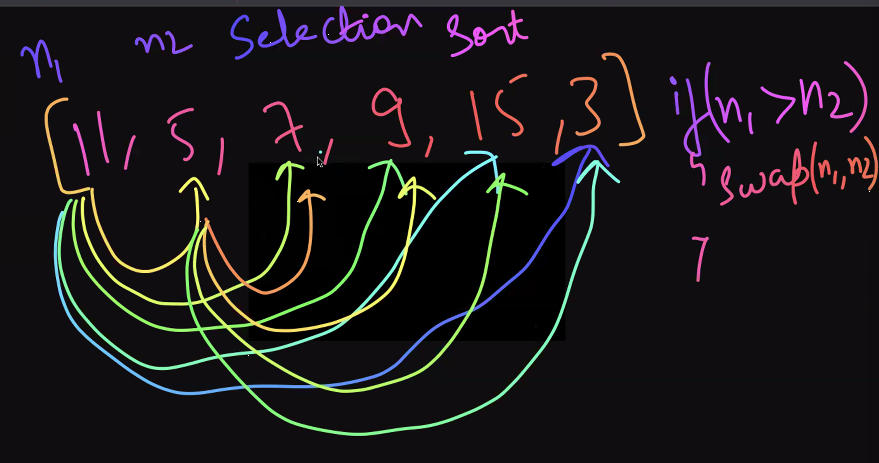 n1 n2 Selection Sort
[11, 5, 7, 9, 15, 3]
if(n1 > n2)
swap(n1, n2)